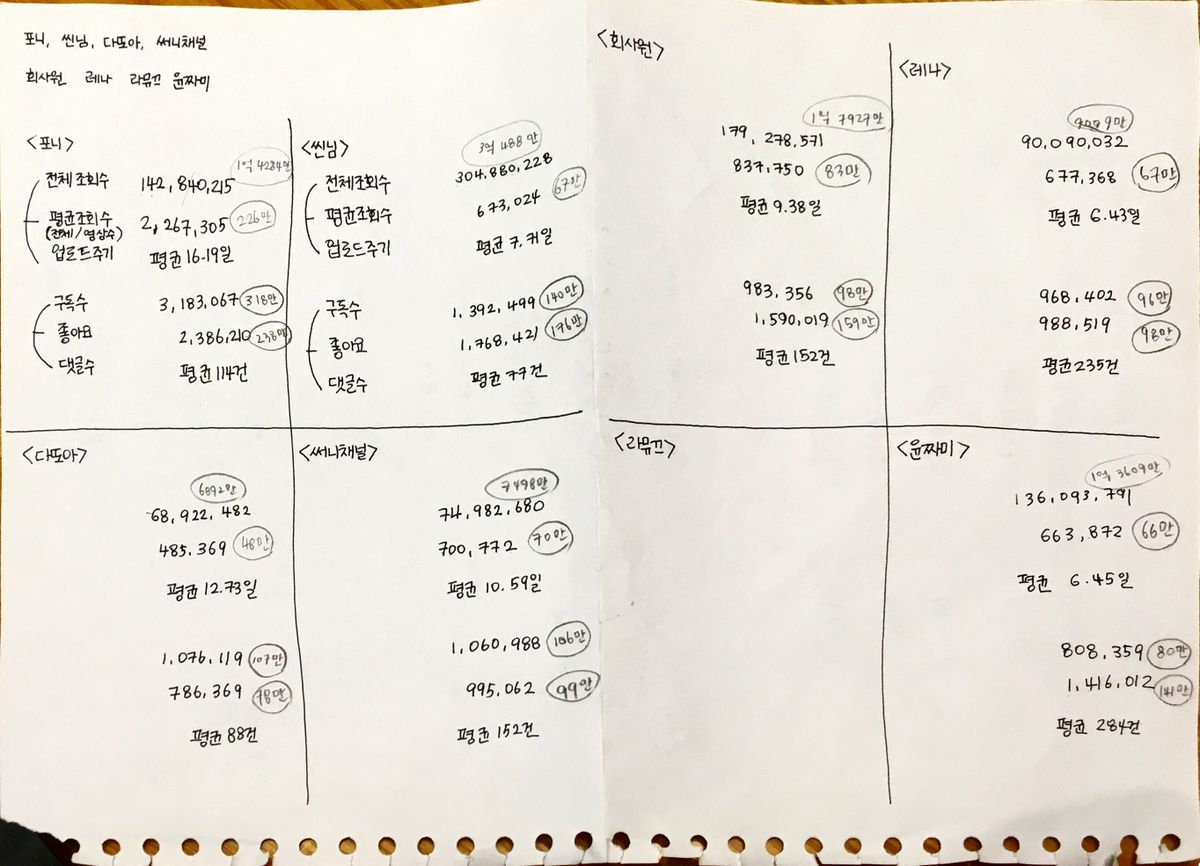 포니, 씬님, 다또아, 써니채널
회사원 레나 라뮤끄 윤짜미
<포니>
1억 4284만
전체 조회수 142,840,215
평균조회수 2,267,305 226만
(전체/영상수)
업로드주기 평균 16-19일
구독수 3,183,067 318만
좋아요 2,386,210 238만
댓글수 평균 114건
<씬님>
3억 488만
전체조회수 304,880,228
평균조회수 673,024 67만
업로드주기 평균 7.7일
구독수 1,392,499 140만
좋아요 1,768,421 176만
댓글수 평균 77건
<회사원>
1억 7927만
179,278,571
837,750 83만
평균 9.38일
983,356 98만
1,590,019 159만
평균 152건
<레나>
9009만
90,090,032
677,368 67만
평균 6.43일
968,402 96만
988,519 98만
평균 235건
<다또아>
6892만
68,922,482
485,369 48만
평균 12.73일
1,076,119 107만
786,369 78만
평균 88건
<써니채널>
7498만
74,982,680
700,772 70만
평균 10.59일
1,060,988 106만
995,062 99만
평균 152건
<라뮤끄>
<윤짜미>
1억 3609만
136,093,791
663,872 66만
평균 6.45일
808,359 80만
1,416,012 141만
평균 284건